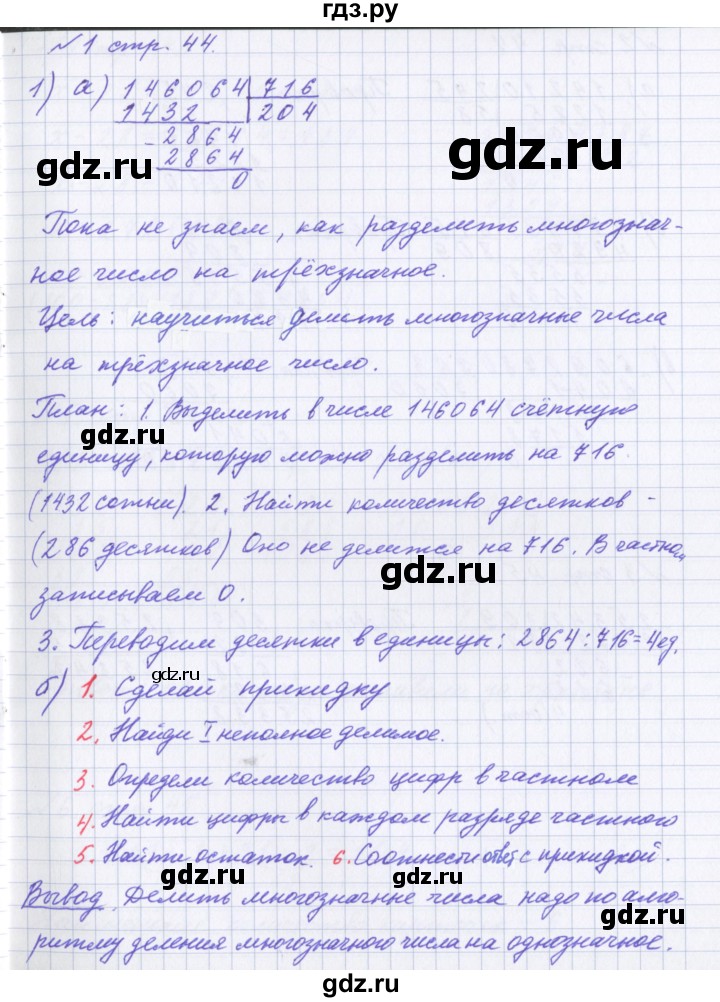 гдз.ру
№1 стр. 44.
1) а) 146064 716
1432 204
- 2864
2864
0
gdz.ru
gdz.ru
Пока не знаем, как разделить многознач-
ное число на трёхзначное.
gdz.ru
Цель: научиться делить многозначные числа
на трёхзначное число.
План: 1. Выделить в числе 146064 счётную
gdz.ru
единицу, которую можно разделить на 716.
(1432 сотни). 2. Найти количество десятков -
(286 десятков) Оно не делится на 716. В частном
gdz.ru
записываем 0.
3. Переводим десятки в единицы: 2864:716=4ед.
gdz.ru
б) 1. Сделай прикидку
2. Найди I неполное делимое.
gdz.ru
3. Определи количество цифр в частном
4. Найти цифры в каждом разряде частного
5. Найти остаток. 6. Соотнести ответ с прикидкой.
gdz.ru
Вывод. Делить многозначные числа надо по алго-
gdz.ru
ритму деления многозначного числа на однозначное.
gdz.ru
gdz.ru